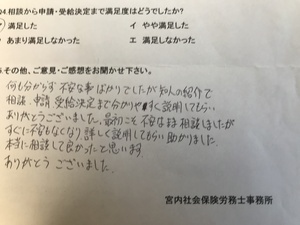 4.相談から申請・受給決定まで満足度はどうでしたか?
満足した イ やや満足した
あまり満足しなかった エ 満足しなかった
.その他、ご意見・ご感想をお聞かせ下さい。
何も分からず 不安な事ばかりでしたが 知人の紹介で
相談、申請 受給決定まで分かりやすく説明してもらい
ありがとうございました。最初こそ不安なまま相談しましたが
すぐに不安もなくなり、詳しく説明してもらい助かりました。
本当に相談して良かったと思います。
ありがとう ございました。
宮内社会保険労務士事務所